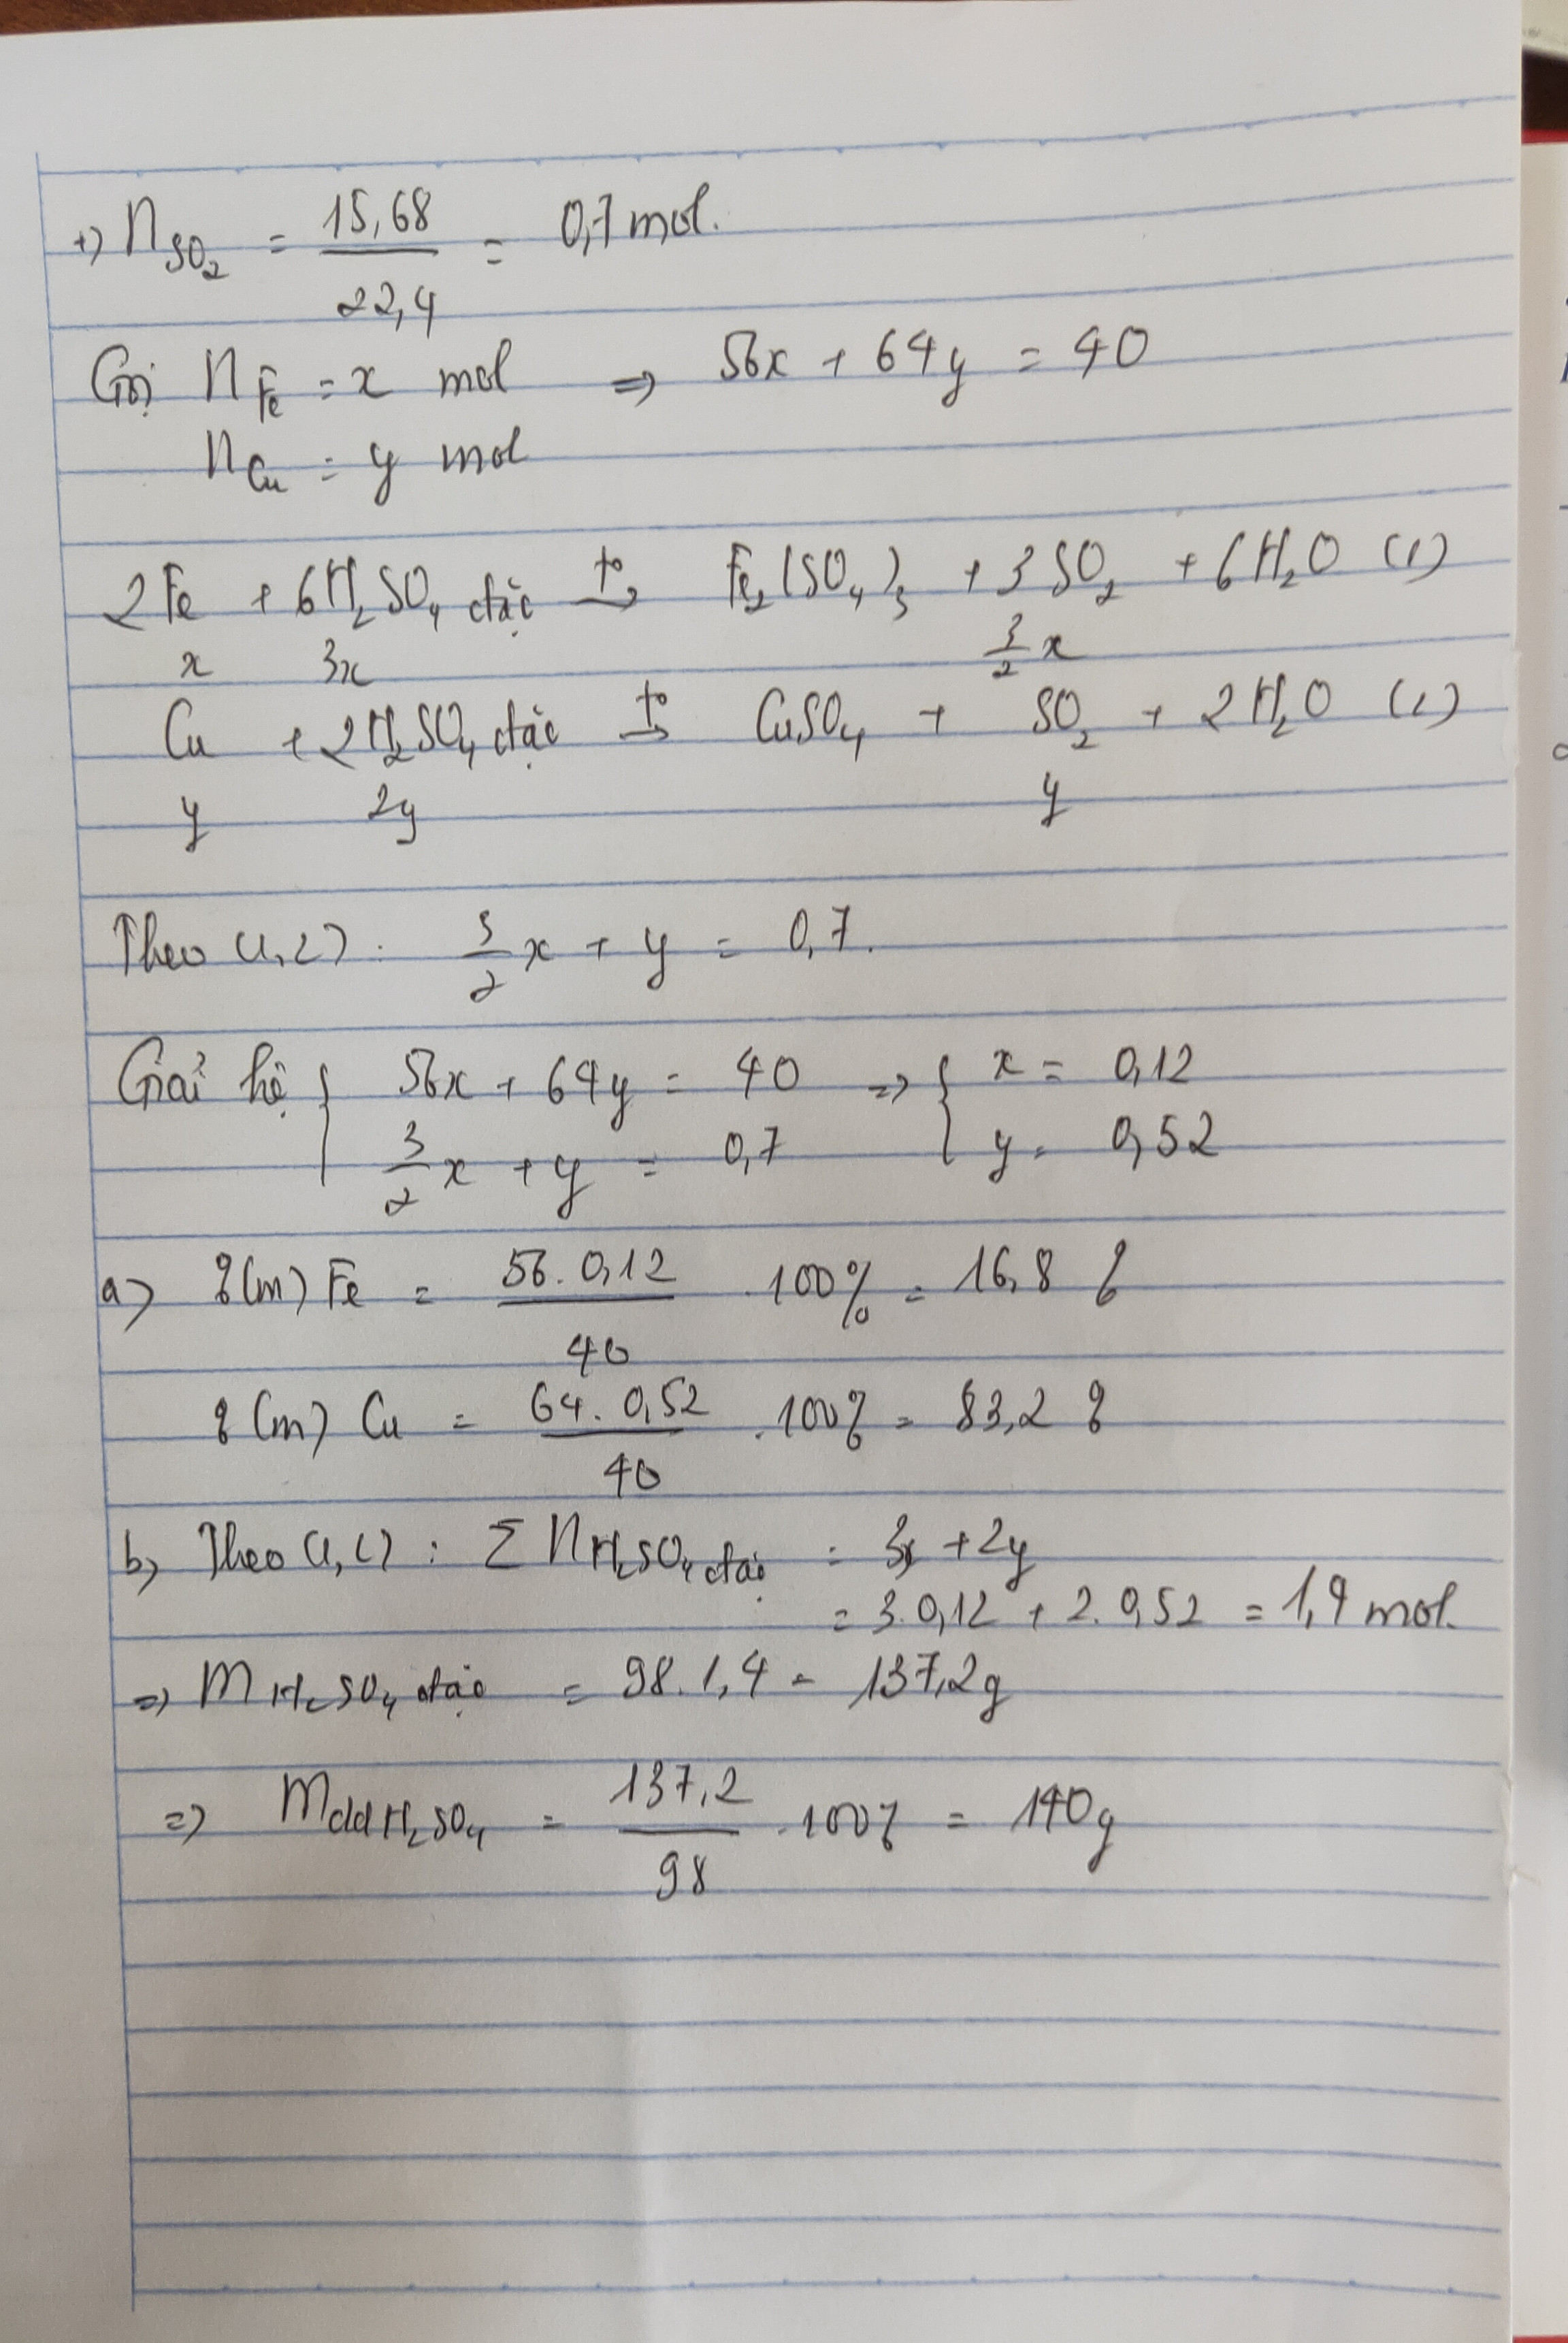 +) nSO2 = 15,68/22,4 = 0,7 mol.
Gọi nFe = x mol => 56x + 64y = 40
nCu = y mol
2Fe + 6H2SO4 đặc t°→ Fe2(SO4)3 + 3SO2 + 6H2O (1)
x 3x 3/2 x
Cu + 2H2SO4 đặc t°→ CuSO4 + SO2 + 2H2O (2)
y 2y y
Theo (1,2): 3/2 x + y = 0,7.
Giải hệ { 56x + 64y = 40 => { x = 0,12
3/2 x + y = 0,7 y = 0,52
a) %(m) Fe = 56.0,12/40 .100% = 16,8 %
%(m) Cu = 64.0,52/40 .100% = 83,2 %
b) Theo (1,2): Σ nH2SO4 đặc = 3x + 2y
= 3.0,12 + 2.0,52 = 1,4 mol.
=> mH2SO4 đặc = 98.1,4 = 137,2g
=> mddH2SO4 = 137,2/98 .100% = 140g